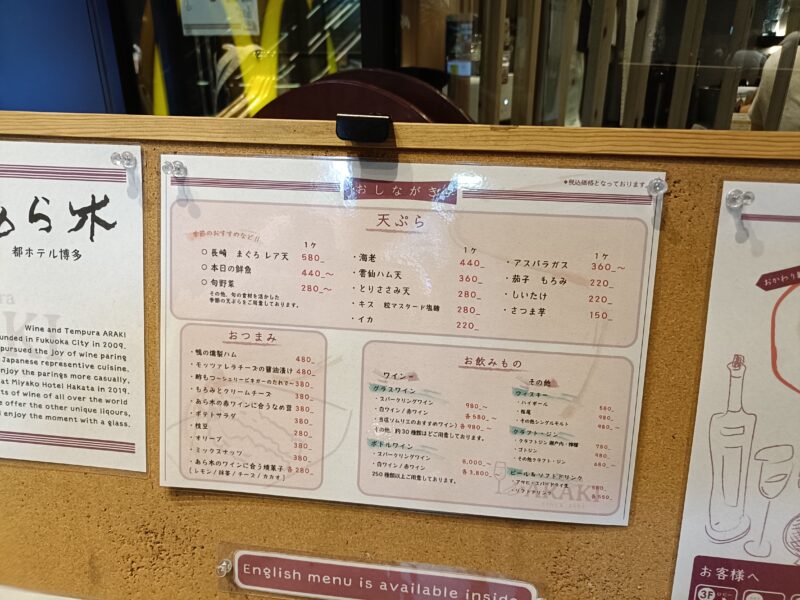 ら木
都ホテル博多
Wine and Tempura ARAKI
unded in Fukuoka City in 2009.
pursued the joy of wine paring
Japanese representive cuisine.
enjoy the parings more casually,
at Miyako Hotel Hakata in 2019.
ts of wine of all over the world
e offer the other unique liqours,
d enjoy the moment with a glass.
おしながき
*税込価格となっております。
天ぷら
季節のおすすめなど!!
1ケ
○長崎 まぐろ レア天 580_
○本日の鮮魚 440_〜
○旬野菜 280_〜
その他、旬の食材を活かした
季節の天ぷらをご用意しております。
1ケ
・海老 440_
・雲仙ハム天 360_
・とりささみ天 280_
・キス 粒マスタード塩麹 280_
・イカ 220_
1ケ
・アスパラガス 360_〜
・茄子 もろみ 220_
・しいたけ 220_
・さつま芋 150_
おつまみ
・鴨の燻製ハム 480_
・モッツァレラチーズの醤油漬け 480_
・酢もつ〜シェリービネガーのたれで〜 380_
・もろみとクリームチーズ 380_
・あら木の赤ワインに合うなめ茸 380_
・ポテトサラダ 380_
・枝豆 280_
・オリーブ 380_
・ミックスナッツ 380_
・あら木のワインに合う焼菓子 各280_
(レモン/抹茶/チーズ/カカオ)
お飲みもの
ワイン
グラスワイン
・スパークリングワイン 980_〜
・白ワイン/赤ワイン 各580_〜
・当店ソムリエのおすすめワイン) 各980_〜
その他、約30種類ほどご用意しております。
ボトルワイン
・スパークリングワイン 6,000_〜
・白ワイン/赤ワイン 各3,800_
250種類以上ご用意しております。
その他
ウィスキー
・ハイボール 580_
・知尾 980_
・その他シングルモルト 980_〜
クラフト・ジン
・クラフトジン 瀬戸内・檸檬 780_
・ゴトジン 980_
・その他クラフト・ジン 680_〜
ビール&ソフトドリンク
・アサヒスーパードライ生
・ソフトドリンク 各550_
ARAKI
English menu is available inside
おかわり
お客様へ
3F